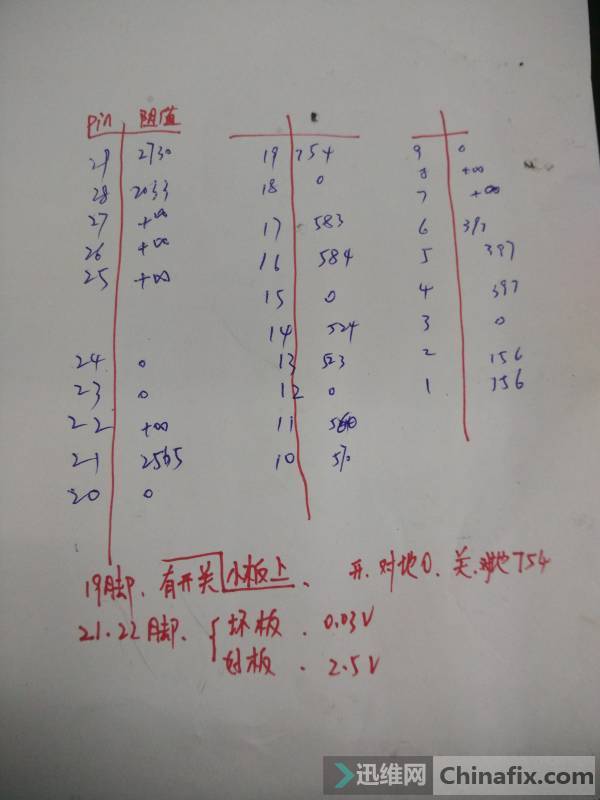 Pin 阻值
29 2730
28 2033
27 +∞
26 +∞
25 +∞
24 0
23 0
22 +∞
21 2565
20 0
19 754
18 0
17 583
16 584
15 0
14 524
13 523
12 0
11
10 570
9 0
8 +∞
7 +∞
6 397
5 397
4 397
3 0
2 156
1 156
19脚. 有开关 小板上、 开. 对地0. 关. 对地754
21.22脚. 坏板. 0.03V
好板. 2.5V
迅维网 Chinafix.com